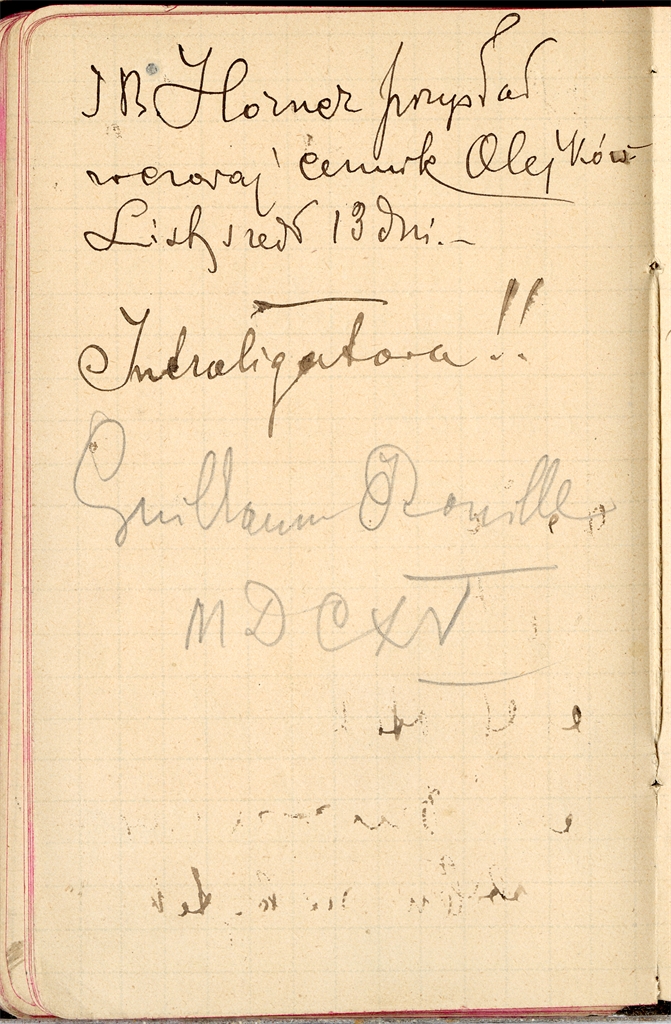 J B. Horner przysłał
wczoraj cennik Olejków
List szedł 13 dni.–
Introligatora!!
Guillaum Rouille
MDCXV